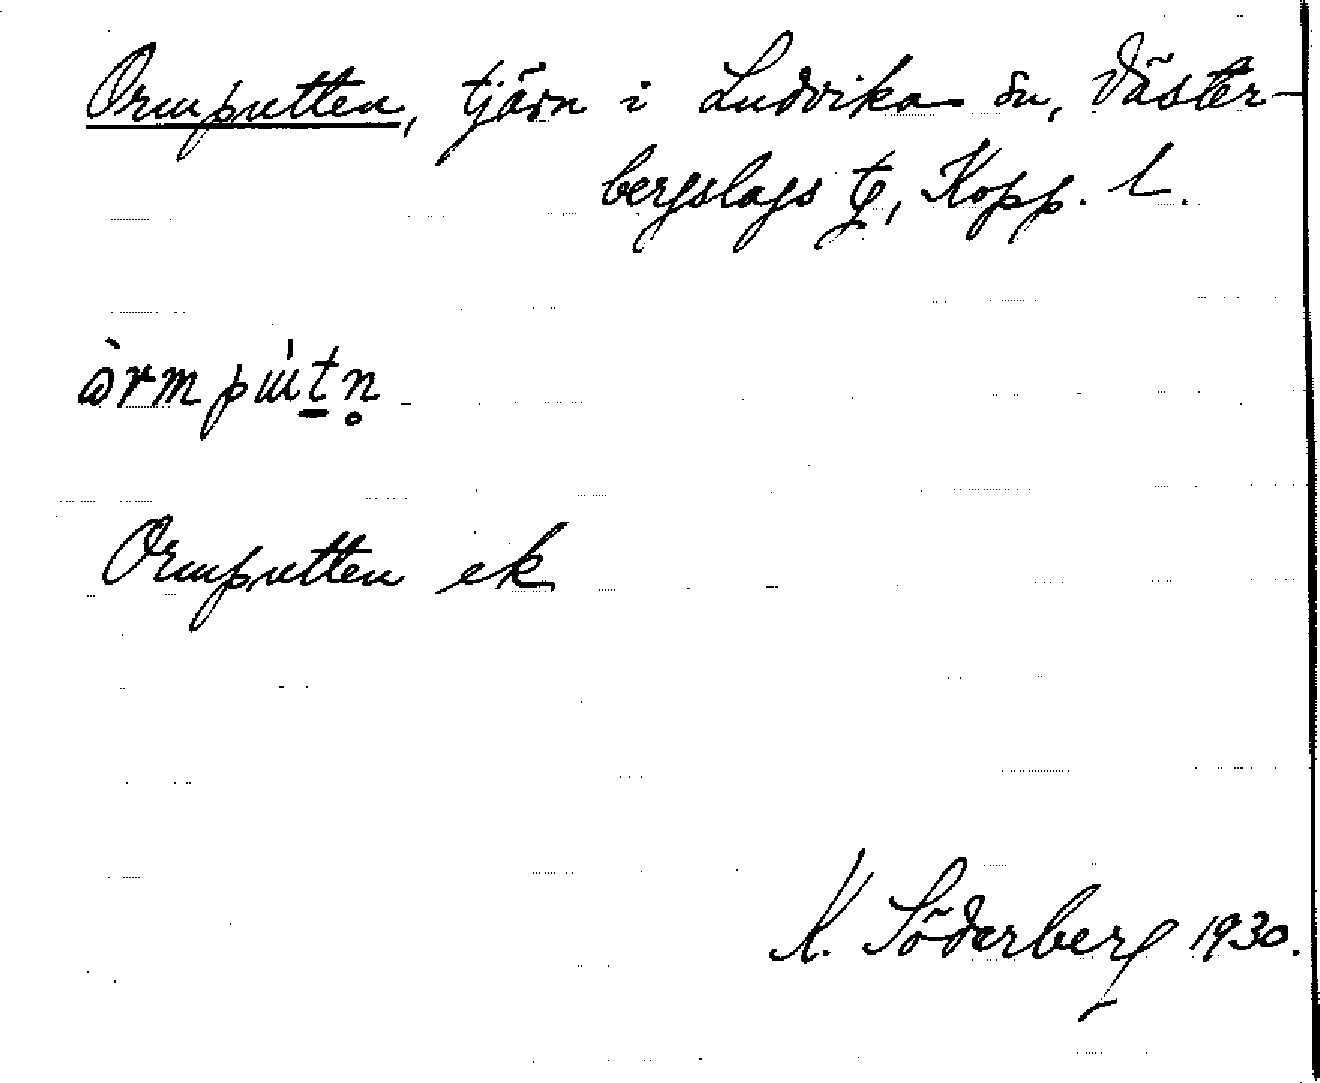 Ormputten, tjärn i Ludvika sn, Väster-
bergslags tg, Kopp. l.
Ormputten ek
K. Söderberg 1930.